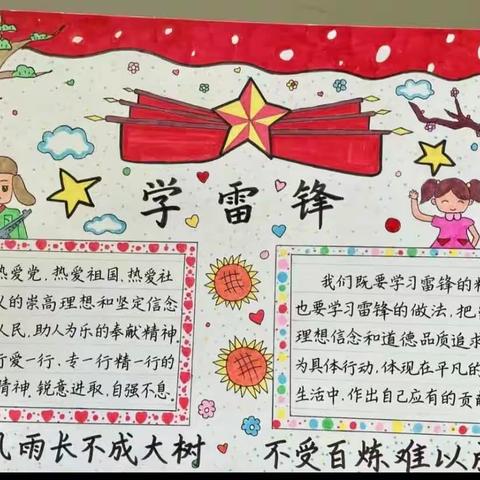 学雷锋
热爱党,热爱祖国,热爱社
义的崇高理想和坚定信念
人民,助人为乐的奉献精神.
行爱一行、专一行精一行的
精神,锐意进取,自强不息.
我们既要学习雷锋的精
也要学习雷锋的做法,把
理想信念和道德品质追求
为具体行动,体现在平凡的
生活中,作出自己应有的贡献
风雨长不成大树
不受百炼难以成